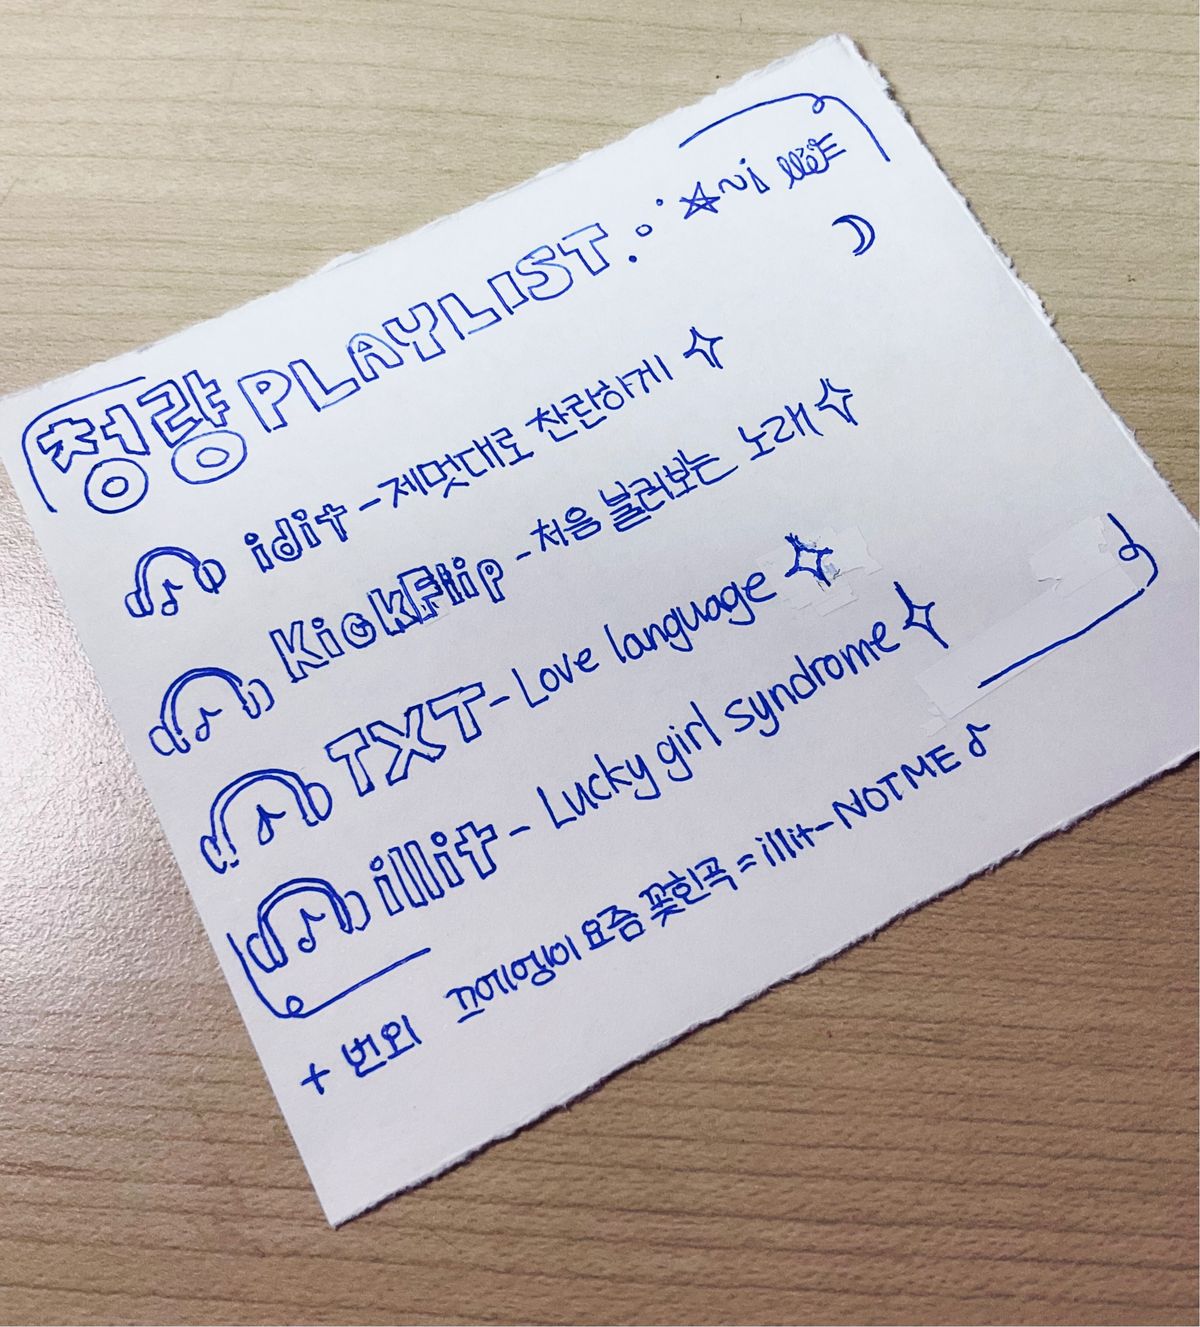 청량 PLAYLIST
idit - 제멋대로 찬란하게
KickFlip - 처음 불러보는 노래
TXT - Love language
illit - Lucky girl syndrome
+ 번외 끄에엥이 요즘 꽂힌곡 = illit - NOT ME